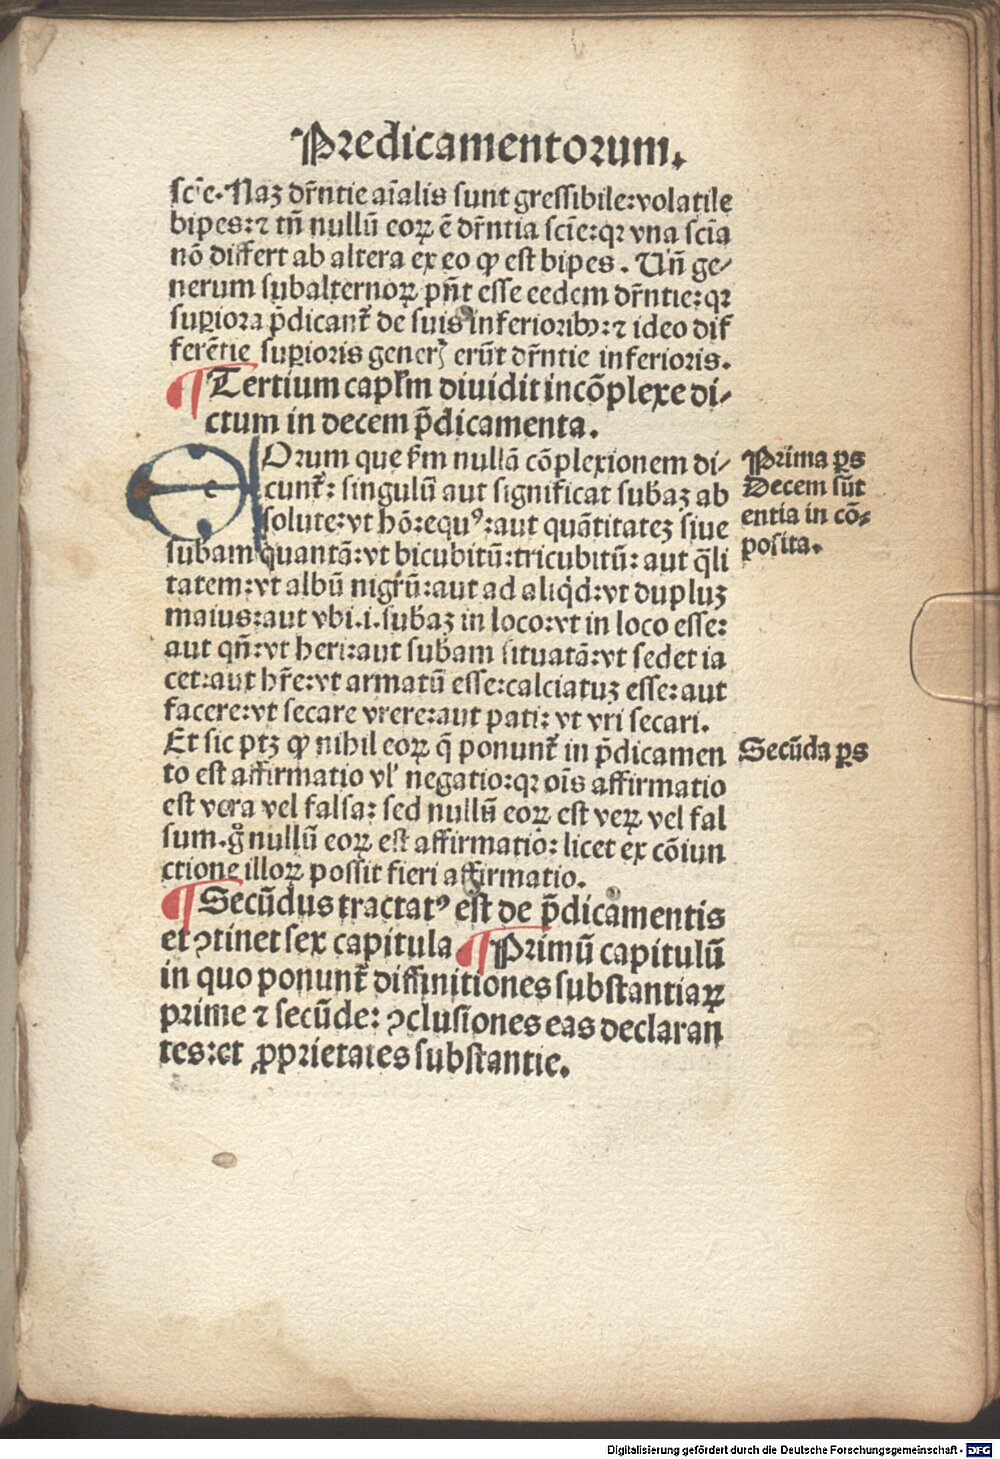 Predicamentorum.
scīe. Naʒ dr̄ntie aīalis sunt gressibile: volatile
bipes: ⁊ tn̄ nullū eoꝝ ē dr̄ntia scīe: qꝛ vna scīa
nō differt ab altera ex eo ꝙ est bipes. Un̄ ge⸗
nerum subalternoꝝ pn̄t esse eedem dr̄ntie: qꝛ
supiora p̄dicant̄ de suis inferioribꝰ: ⁊ ideo dif
ferētie supioris generꝭ erūt dr̄ntie inferioris.
¶ Tertium caplm̄ diuidit incōplexe di⸗
ctum in decem p̄dicamenta.
EOrum que ẜm nullā cōplexionem di⸗
cunt̄: singulū aut significat subaʒ ab
solute: vt hō: equꝰ: aut quātitateʒ siue
subam quantā: vt bicubitū: tricubitū: aut q̄li
tatem: vt albū nigrū: aut ad aliq̇d: vt dupluʒ
maius: aut vbi .i. subaʒ in loco: vt in loco esse:
aut qn̄: vt heri: aut subam situatā: vt sedet ia
cet: aut hr̄e: vt armatū esse: calciatuʒ esse: aut
facere: vt secare vrere: aut pati: vt vri secari.
Et sic ptʒ ꝙ nihil eoꝝ q̄ ponunt̄ in p̄dicamen
to est affirmatio vl' negatio: qꝛ oīs affirmatio
est vera vel falsa: sed nullū eoꝝ est veꝝ vel fal
sum. gͦ nullū eoꝝ est affirmatio: licet ex cōiun
ctione illoꝝ possit fieri affirmatio.
¶ Secūdus tractatꝰ est de p̄dicamentis
et ꝯtinet sex capitula ¶ Primū capitulū
in quo ponunt̄ diffinitiones substantiaꝝ
prime ⁊ secūde: ꝯclusiones eas declaran
tes: et ꝓprietates substantie.
Prima ꝑs
Decem sūt
entia in cō⸗
posita.
Secūda ꝑs
Digitalisierung gefördert durch die Deutsche Forschungsgemeinschaft - DFG